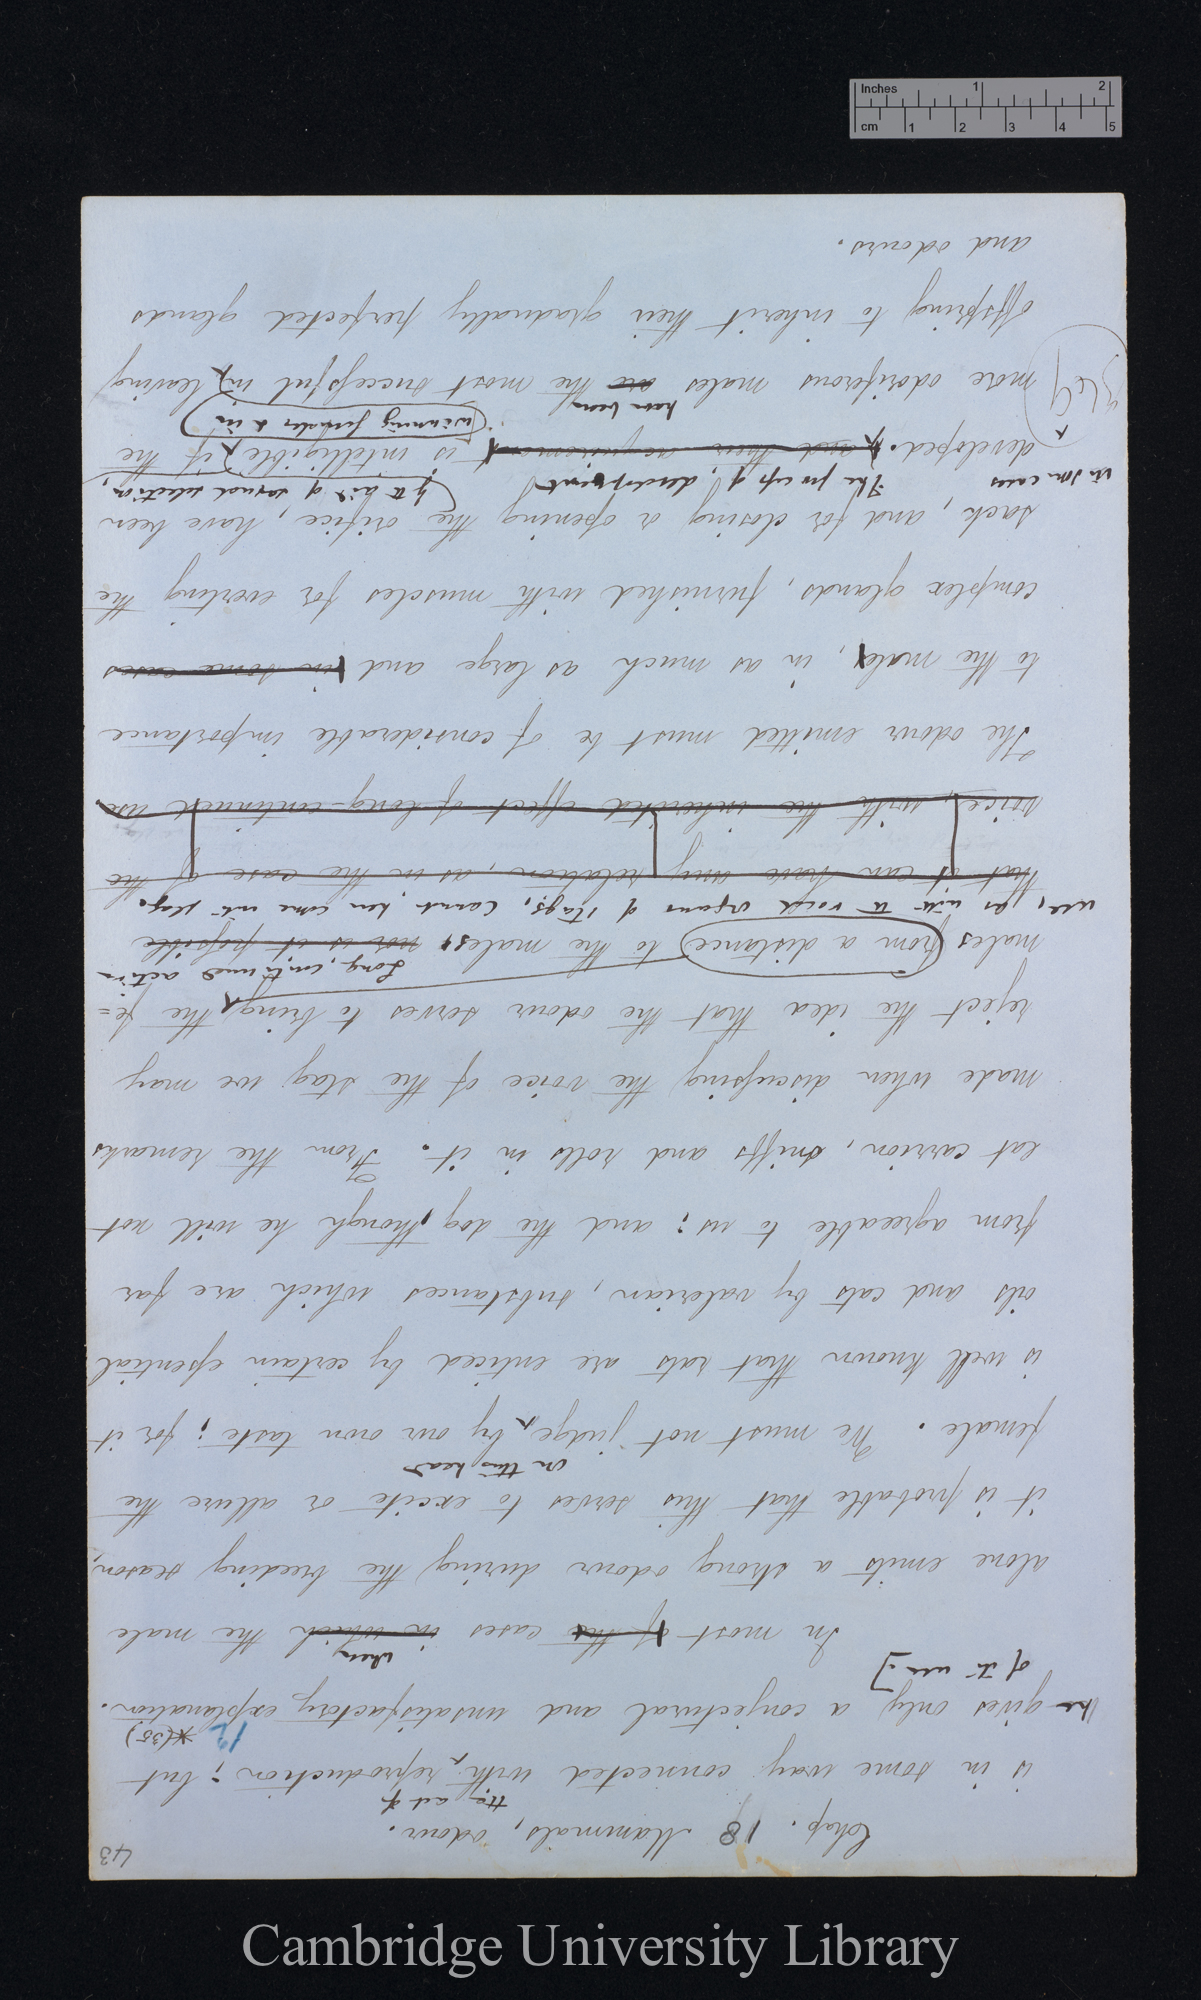 Inches 1 2
cm 1 2 3 4 5
43
Chap. 18 Mammals, odour.
the act of
is in some way connected with reproduction; but
*(35)
12
he gives only a conjectural and unsatisfactory explanation.
of its use]
when
In most of the cases in which the male
alone emits a strong odour during the breeding season,
it is probable that this serves to excite or allure the
on this head
female. We must not judge by our own taste; for it
is well known that rats are enticed by certain essential
oils and cats by valerian, substances which are far
from agreeable to us; and the dog, though he will not
eat carrion, sniffs and rolls in it. From the remarks
made when discussing the voice of the stag, we may
reject the idea that the odour serves to bring the fe=
Long continued action
males from a distance to the males, nor is it possible
use, as with the vocal organs of stags, cannot have come into play.
that it can have any relation, as in the case of the
voice, with the inherited effect of long-continued use
The odour emitted must be of considerable importance
to the male, in as much as large and in some cases
complex glands, furnished with muscles for everting the
sack, and for closing or opening the orifice, have been
in some cases
The of development
of sexual selection,
developed. and their is intelligible if the
have been
winning females & in
369
more odoriferous males are the most successful in leaving
offspring to inherit their gradually perfected glands
and odours.
Cambridge University Library